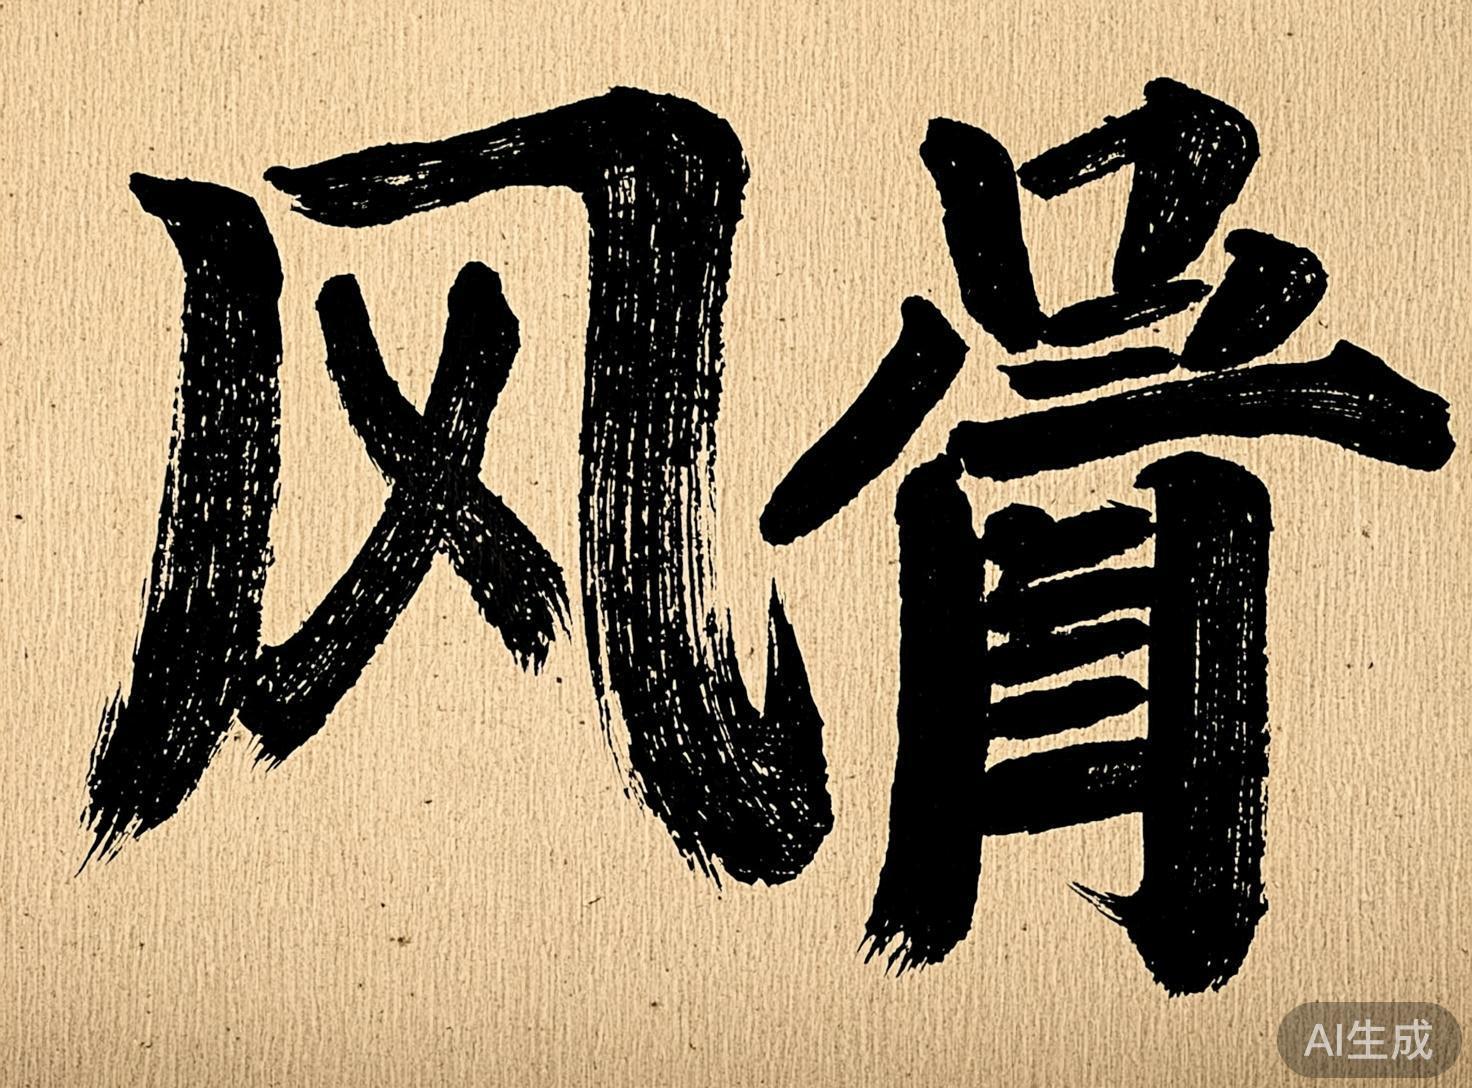 风骨
AI生成